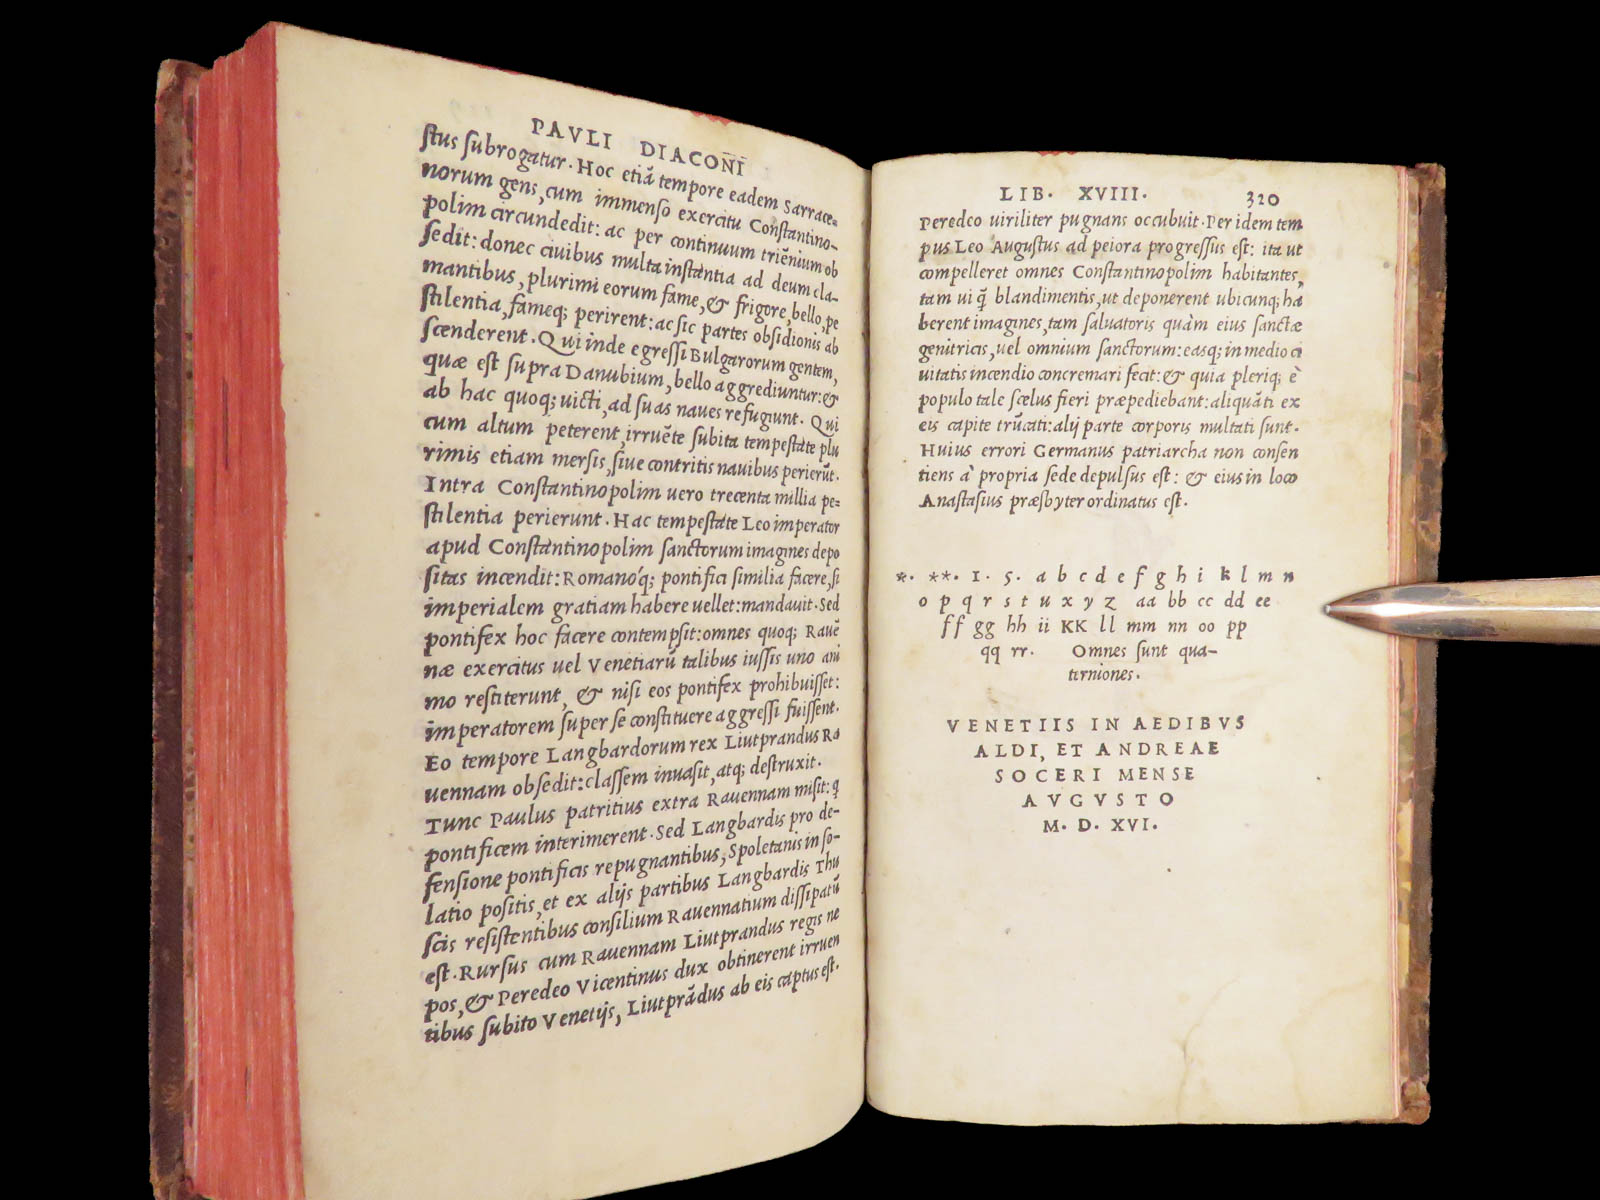 PAVLI DIACONĪ
stus subrogatur. Hoc etiā tempore eadem Sarrace=
norum gens, cum immenso exercitu Constantino-
polim circundedit: ac per continuum triēnium ob
sedit: donec ciuibus multa instantia ad deum cla-
mantibus, plurimi eorum fame, & frigore, bello, pe
stilentia, fameq; perirent: ac sic partes obsidionis ab
scenderent. Qui inde egressi Bulgarorum gentem,
quæ est supra Danubium, bello aggrediuntur: &
ab hac quoq; uicti, ad suas naues refugiunt. Qui
cum altum peterent, irruēte subita tempestate plu
rimis etiam mersis, siue contritis nauibus perierūt.
Intra Constantinopolim uero trecenta millia pe=
stilentia perierunt. Hac tempestate Leo imperator
apud Constantinopolim sanctorum imagines depo
sitas incendit: Romanóq; pontifici similia facere, si
imperialem gratiam habere uellet: mandauit. Sed
pontifex hoc facere contempsit: omnes quoq; Rauē
næ exercitus uel Venetiarū talibus iussis uno ani
mo restiterunt, & nisi eos pontifex prohibuisset:
imperatorem super se constituere aggressi fuissent.
Eo tempore Langbardorum rex Liutprandus Ra
uennam obsedit: classem inuasit, atq; destruxit.
Tunc Paulus patritius extra Rauennam misit: q̃
pontificem interimerent. Sed Langbardis pro de-
fensione pontificis repugnantibus, Spoletanis in so-
latio positis, et ex alijs partibus Langbardis Thu
scis resistentibus consilium Rauennatium dissipatū
est. Rursus cum Rauennam Liutprandus regis ne
pos, & Peredeo Vicentinus dux obtinerent irruen
tibus subito Venetijs, Liutprādus ab eis captus est.
LIB. XVIII. 320
Peredeo uiriliter pugnans occubuit. Per idem tem
pus Leo Augustus ad peiora progressus est: ita ut
compelleret omnes Constantinopolim habitantes,
tam ui q̃ blandimentis, ut deponerent ubicunq; ha
berent imagines, tam saluatoris quàm eius sanctæ
genitricis, uel omnium sanctorum: easq; in medio ci
uitatis incendio concremari fecit: & quia pleriq; è
populo tale scelus fieri præpediebant: aliquāti ex
eis capite trūcati: alij parte corporis multati sunt.
Huius errori Germanus patriarcha non consen
tiens à propria sede depulsus est: & eius in loco
Anastasius præsbyter ordinatus est.
*. **. 1. 5. a b c d e f g h i k l m n
o p q r s t u x y z aa bb cc dd ee
ff gg hh ii KK ll mm nn oo pp
qq rr. Omnes sunt qua-
terniones.
VENETIIS IN AEDIBVS
ALDI, ET ANDREAE
SOCERI MENSE
AVGVSTO
M. D. XVI.